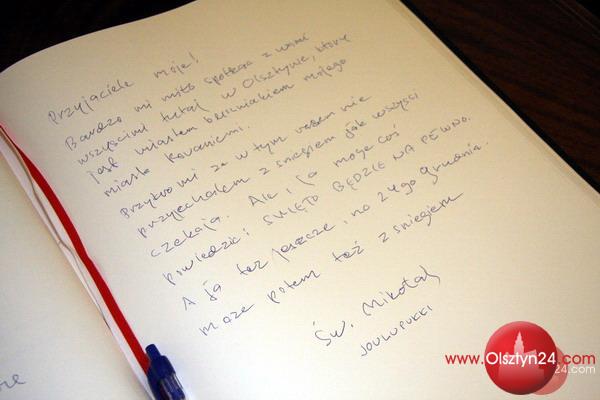 Przyjaciele moje!
Bardzo mi miło spotkac z wami
wszyscimi tutaj w Olsztynie, ktory
jest miastem blizniakiem mojego
miasta Rovaniemi.
Przykro mi ze w tym razem nie
przyjechałem z sniegiem jak wszysci
czekają. Ale i ja moge coś
powiedzic: SWIĘTO BĘDZIE NA PEWNO.
A ja tez jeszcze, na 24go grudnia.
moze potem też z sniegiem
Św. Mikołaj
JOULUPUKKI
www.Olsztyn24.com
24.com